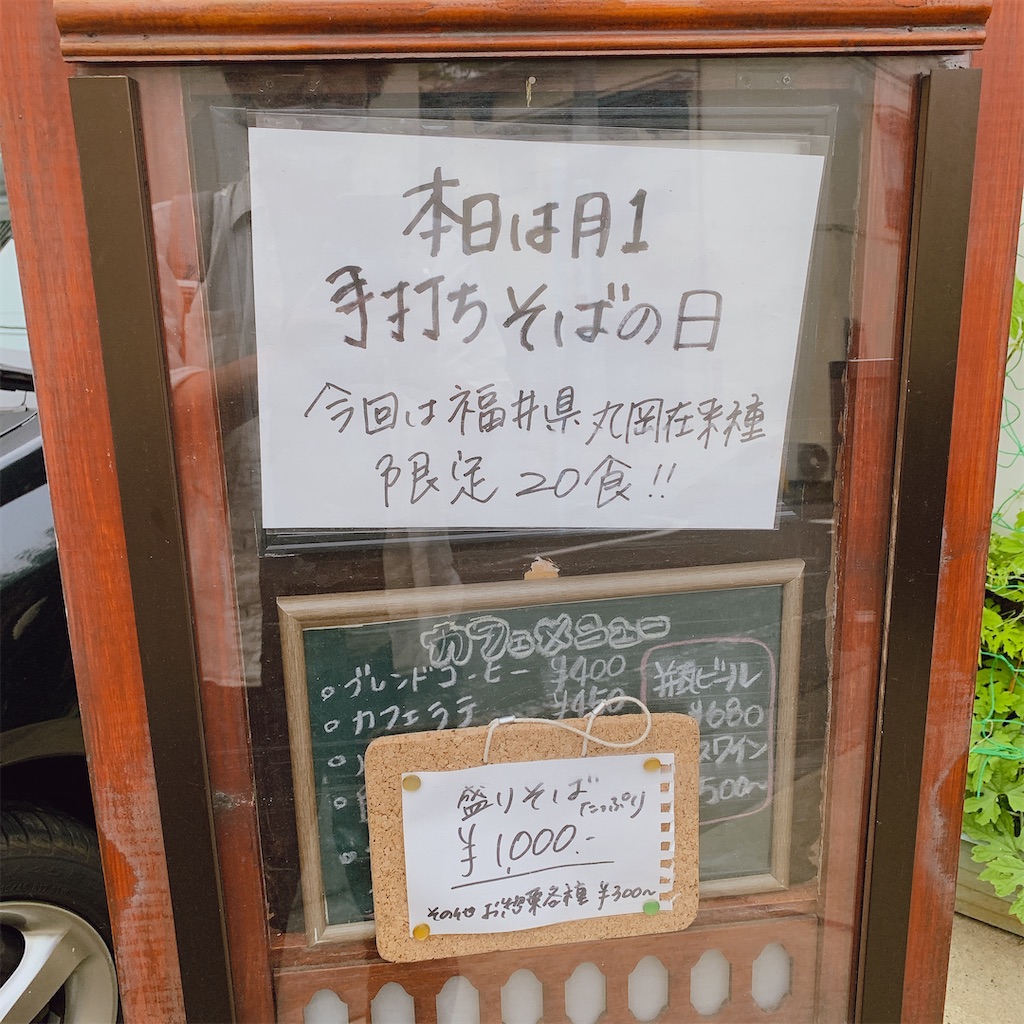 本日は月1
手打ちそばの日
今回は福井県丸岡在来種
限定20食!!
カフェメニュー
○ブレンドコーヒー ¥400
○カフェラテ ¥450
瓶ビール
¥680
スワイン
500～
盛りそば たっぷり
¥1,000.-
その他 お惣菜各種 ¥300～